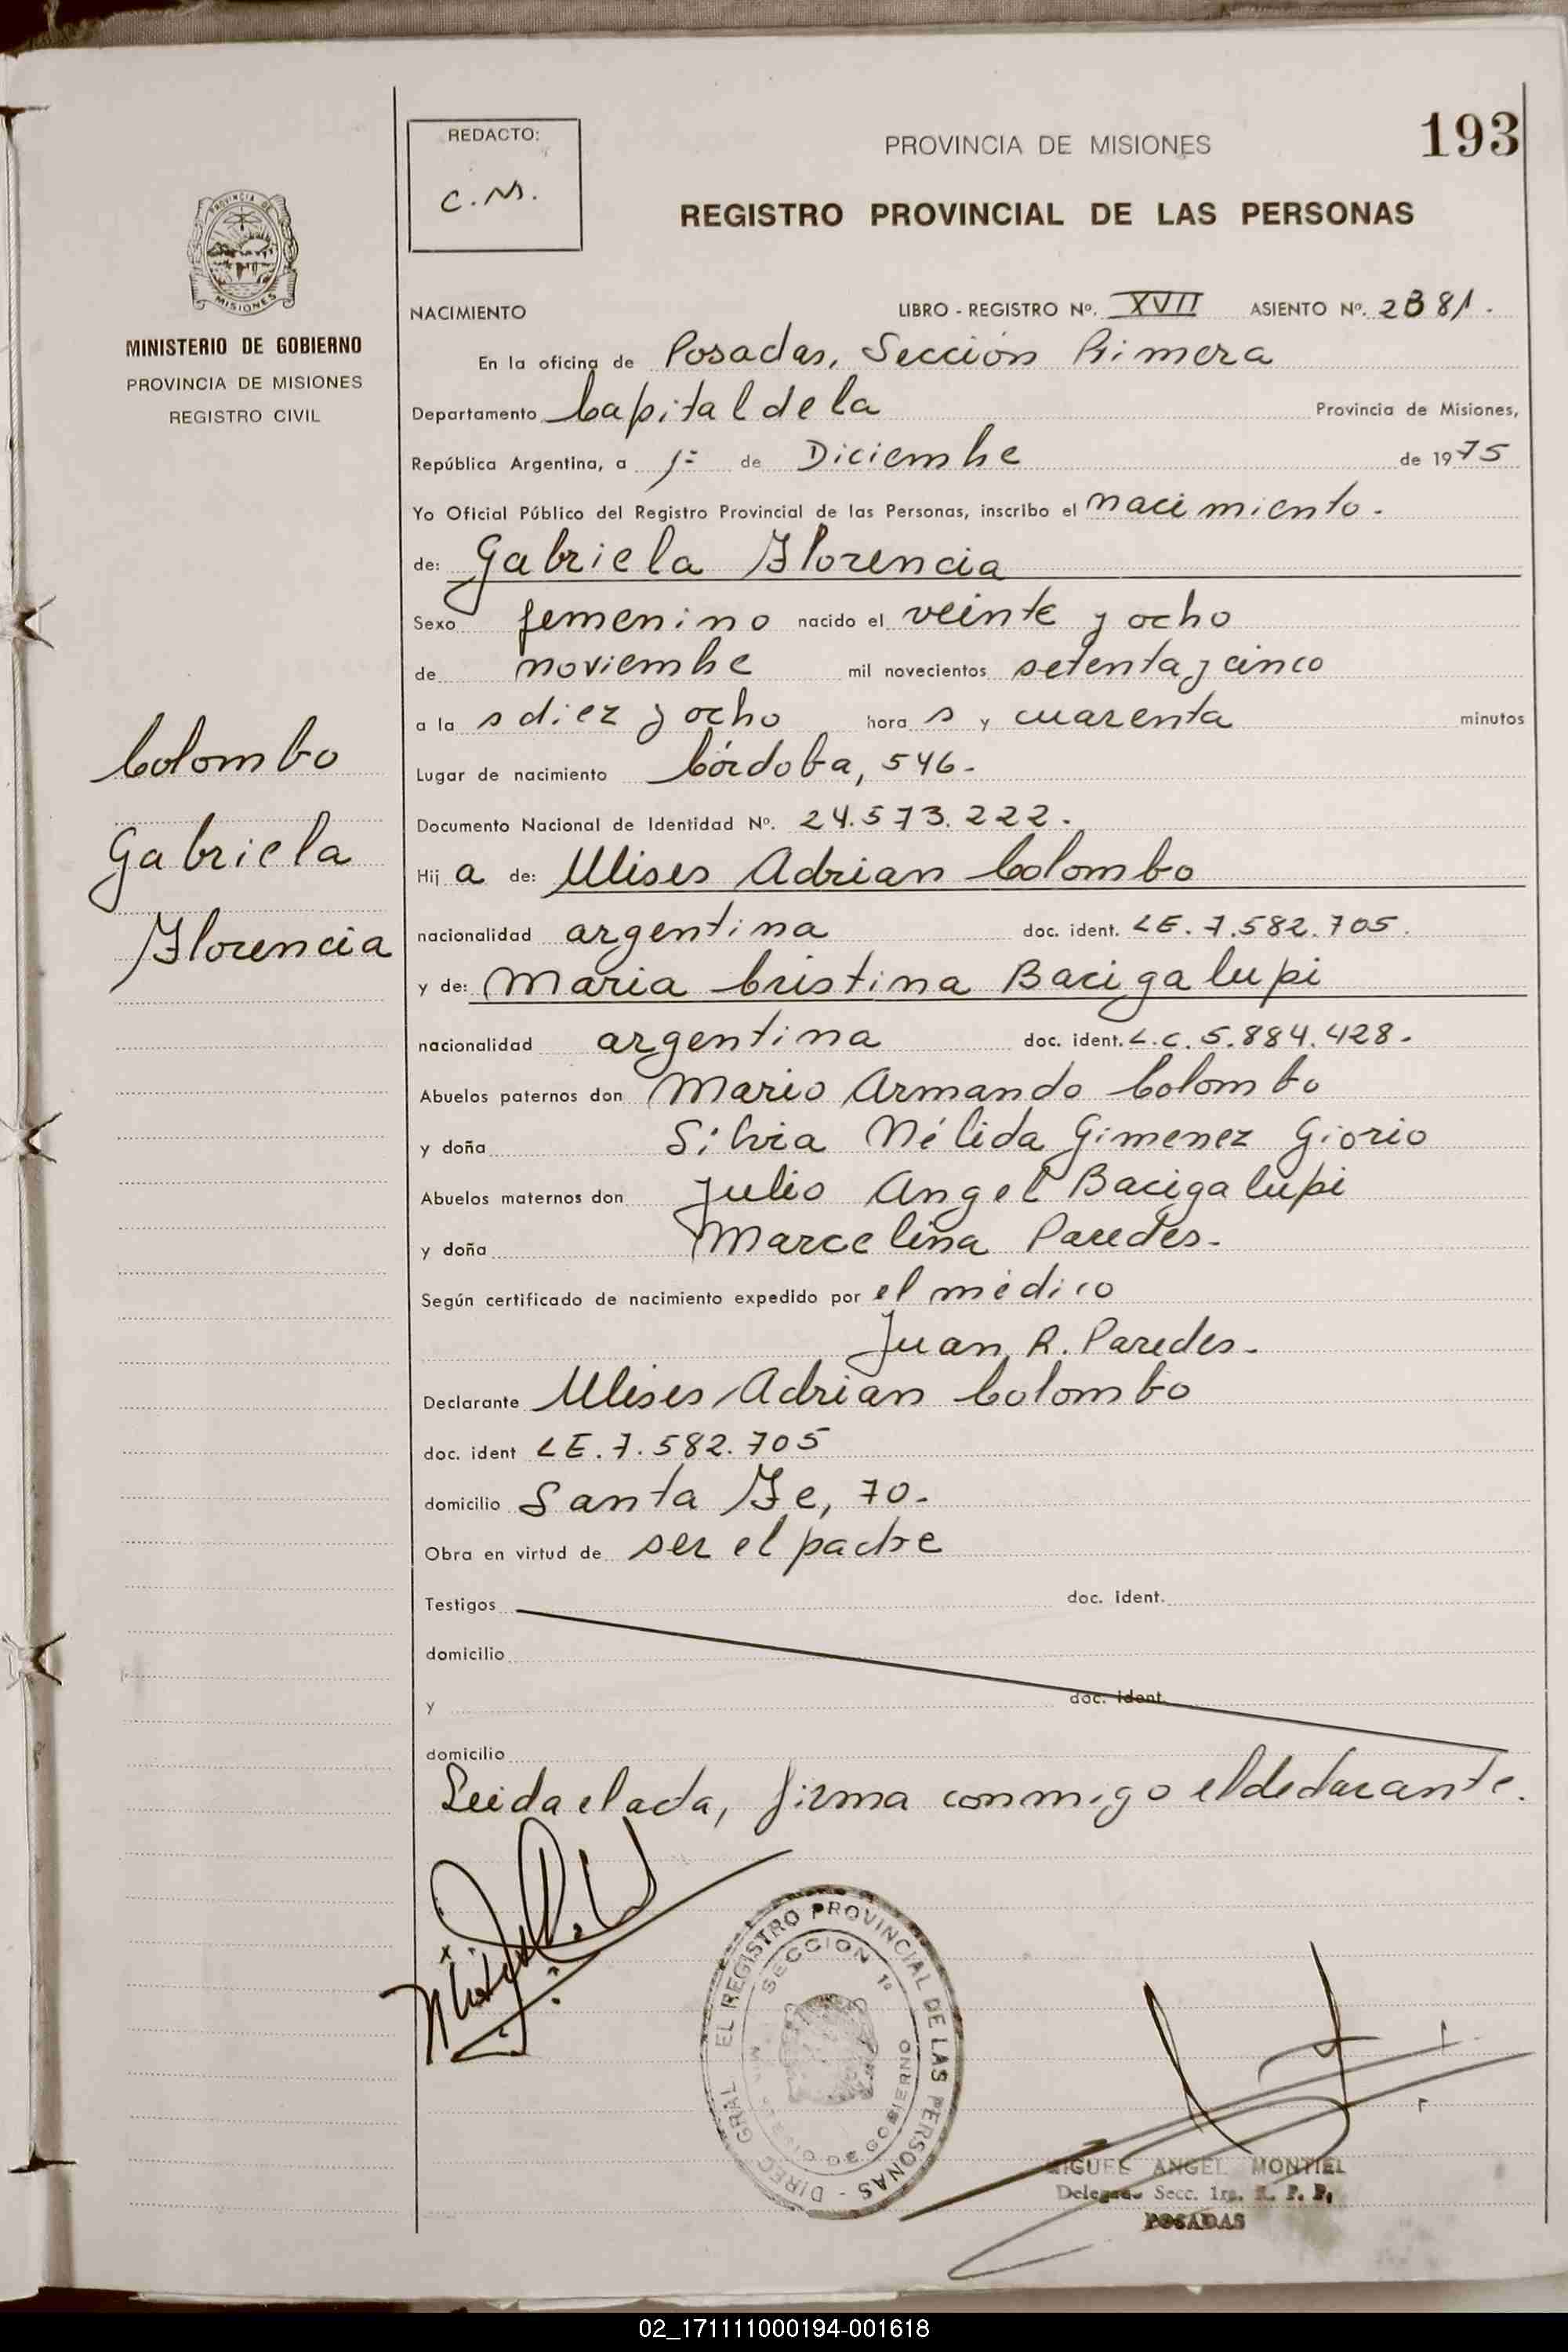 193
REDACTO:
C.M.
PROVINCIA DE MISIONES
REGISTRO PROVINCIAL DE LAS PERSONAS
PROVINCIA DE
MISIONES
MINISTERIO DE GOBIERNO
PROVINCIA DE MISIONES
REGISTRO CIVIL
NACIMIENTO LIBRO - REGISTRO Nº. XVII ASIENTO Nº. 2381.
En la oficina de Posadas, Sección Primera
Departamento Capital de la Provincia de Misiones,
República Argentina, a 1º de Diciembre de 1975
Yo Oficial Público del Registro Provincial de las Personas, inscribo el nacimiento.
de: Gabriela Florencia
Sexo femenino nacido el veinte y ocho
de noviembre mil novecientos setenta y cinco
a la s diez y ocho hora s y cuarenta minutos
Lugar de nacimiento Córdoba, 546.
Documento Nacional de Identidad Nº. 24.573.222.
Hij a de: Ulises Adrian Colombo
nacionalidad argentina doc. ident. LE. 7.582.705.
y de: Maria Cristina Bacigalupi
nacionalidad argentina doc. ident. L.C. 5.884.428.
Abuelos paternos don Mario Armando Colombo
y doña Silvia Nélida Gimenez Giorio
Abuelos maternos don Julio Angel Bacigalupi
y doña Marcelina Paredes.
Según certificado de nacimiento expedido por el médico
Juan R. Paredes.
Declarante Ulises Adrian Colombo
doc. ident LE. 7.582.705
domicilio Santa Fe, 70.
Obra en virtud de ser el padre
Testigos doc. ident.
domicilio
y doc. ident.
domicilio
Leida el acta, firma conmigo el declarante.
Colombo
Gabriela
Florencia
DIREC GRAL EL REGISTRO PROVINCIAL DE LAS PERSONAS -
SECCION 1ª
DE GOBIERNO
MIGUEL ANGEL MONTIEL
Delegado Secc. 1ra. R. P. P.
POSADAS
02_171111000194-001618